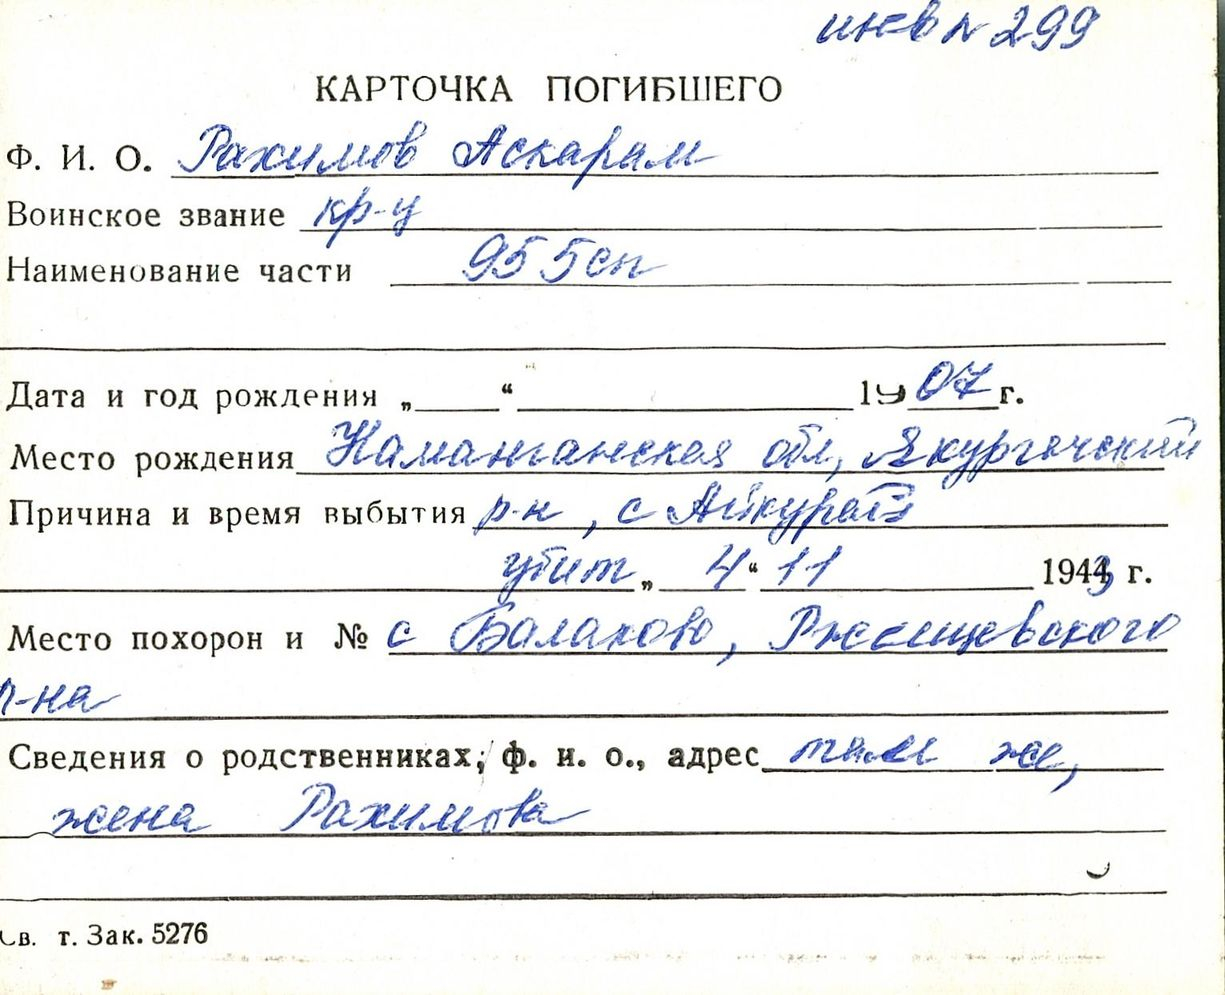 инв № 299
КАРТОЧКА ПОГИБШЕГО
Ф. И. О. Рахимов Аскарам
Воинское звание кр-ц
Наименование части 955сп
Дата и год рождения „ “ 1907 г.
Место рождения Наманганская обл, Якургачский
Причина и время выбытия р-н, с Айкурат
убит „ 4 “ 11 1943 г.
Место похорон и № с Балахово, Ржищевского
р-на
Сведения о родственниках; ф. и. о., адрес там же,
жена Рахимова
Св. т. Зак. 5276